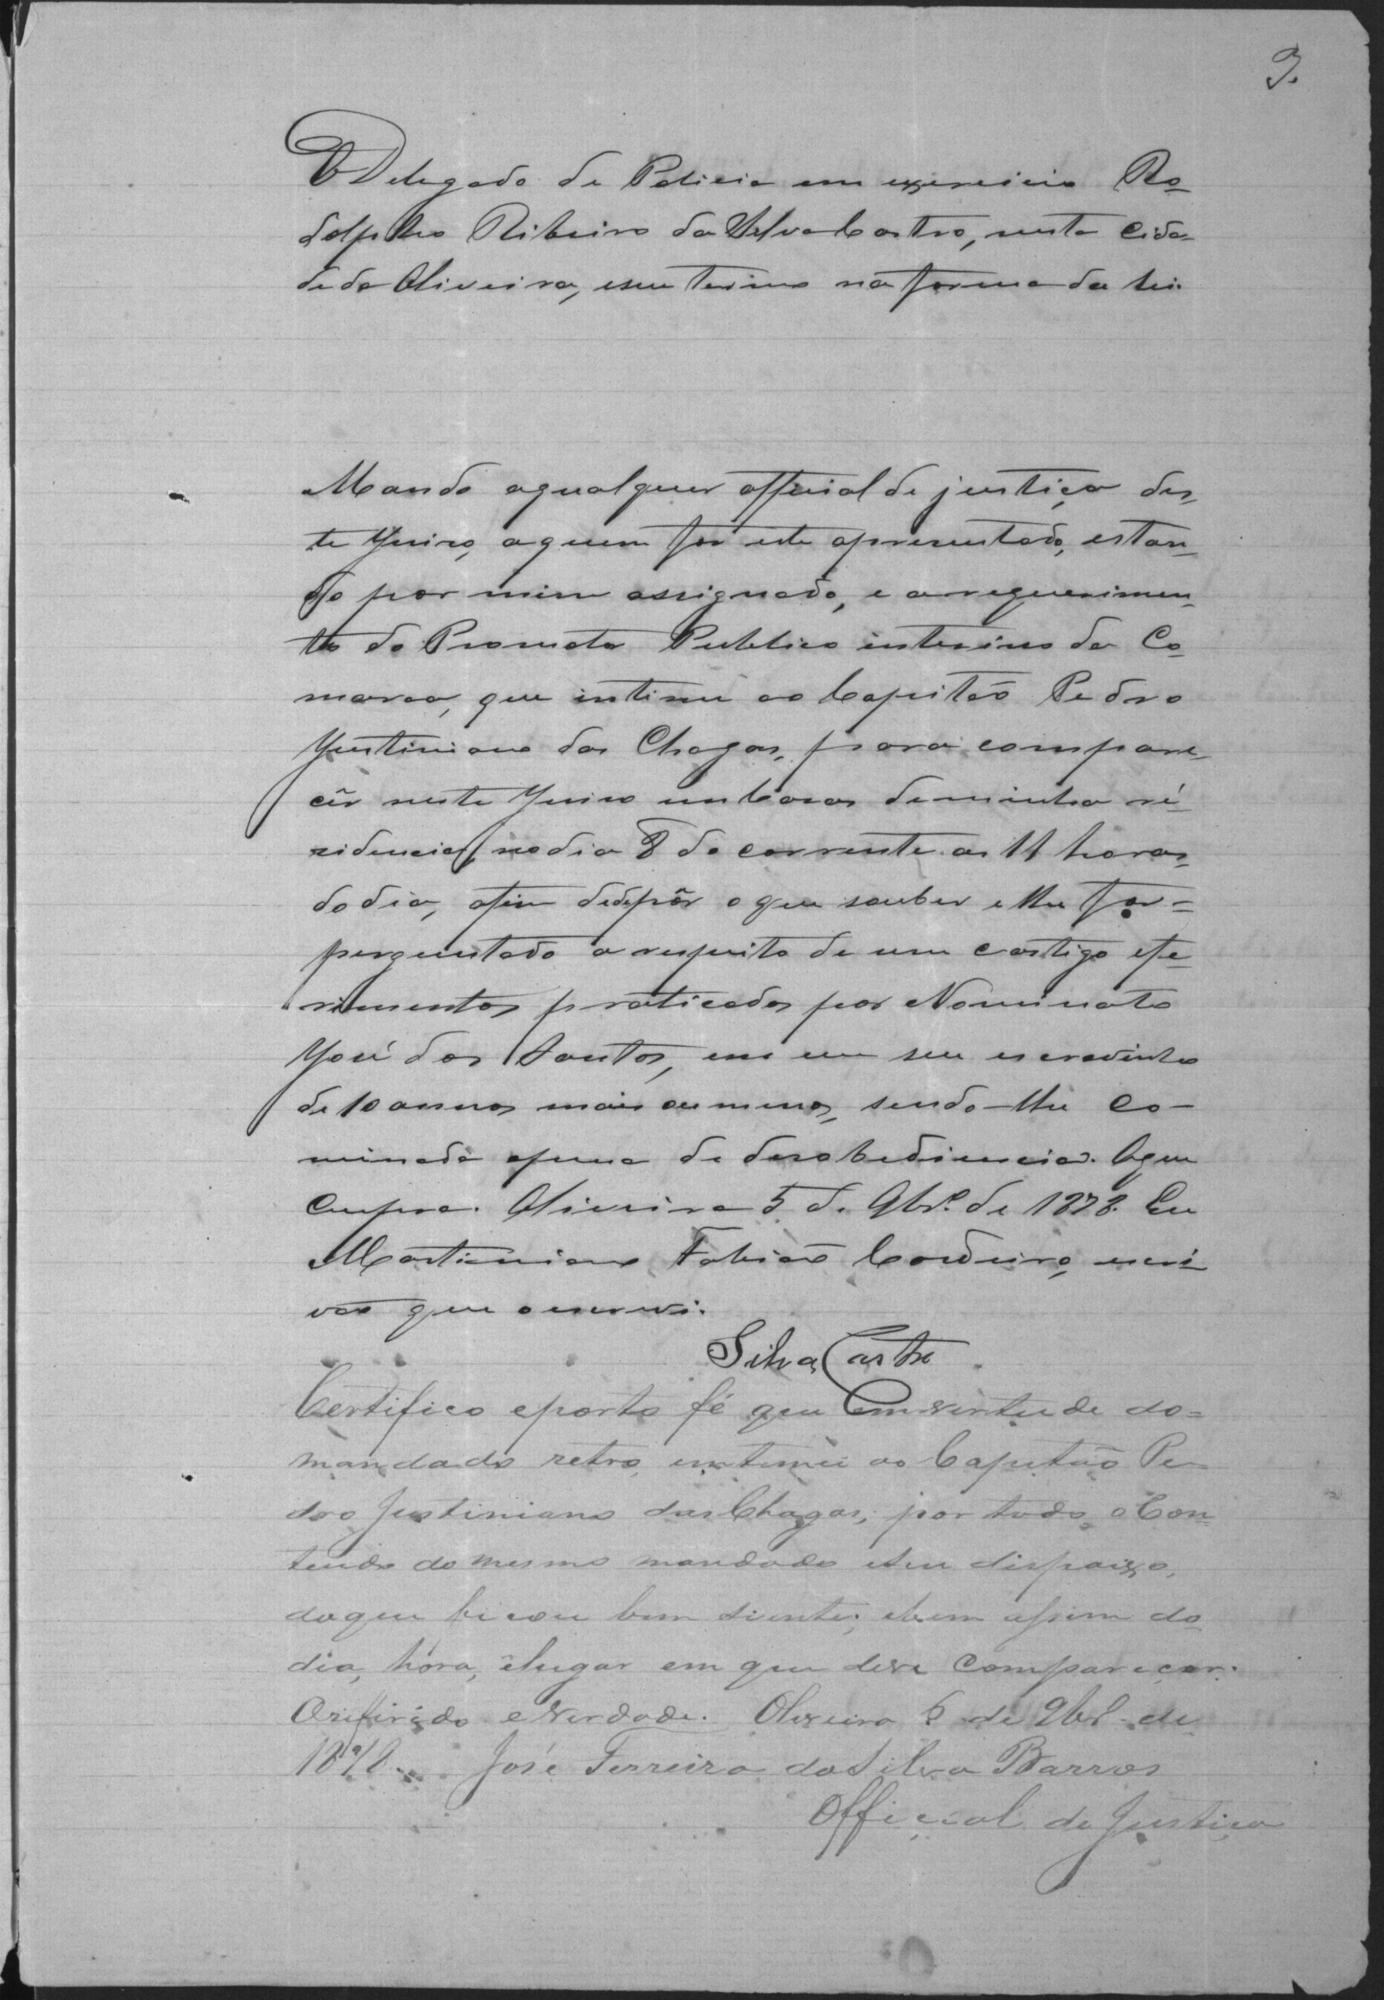 3.
O Delegado de Policia em exercicio Ro-
dolpho Ribeiro da Silva Castro, nesta Cida-
de de Oliveira, eseu termo na forma da lei.
Mando aqualquer official de justiça des-
te Juiso, aquem for este apresentado, estan-
do por mim assignado, e a requerimen-
to do Promotor Publico interino da Co-
marca, que intime ao Capitão Pedro
Justiniano das Chagas, para compare-
cêr neste Juiso em Casa de minha re-
zidencia, no dia 8 do corrente as 11 horas
do dia, afim dedepôr o que souber e lhe for-
perguntado a respeito de um castigo efe-
rimentos praticados por Nominato
José dos Santos, em um seu escravinho
de 10 annos mais ou menos, sendo-lhe co-
minada apena de desobediencia. O que
cumpra. Oliveira 5 de 9br.º de 1878. Eu
Martiniano Fabião Cordeiro, escri-
vão que o escrevi.
Silva Castro
Certifico eporto fé que em virtude do-
mandado retro, entimei ao Capitão Pe-
dro Justiniano das Chagas, por todo o Con-
teudo do mesmo mandado eseu dispaixo,
do que ficou bem siente; ebem assim do
dia, hora, elugar em que deve Compareçer.
Orifirido e Verdade. Oliveira 5 de 9br. de
1878. José Ferreira da Silva Barros
Official de Justiça